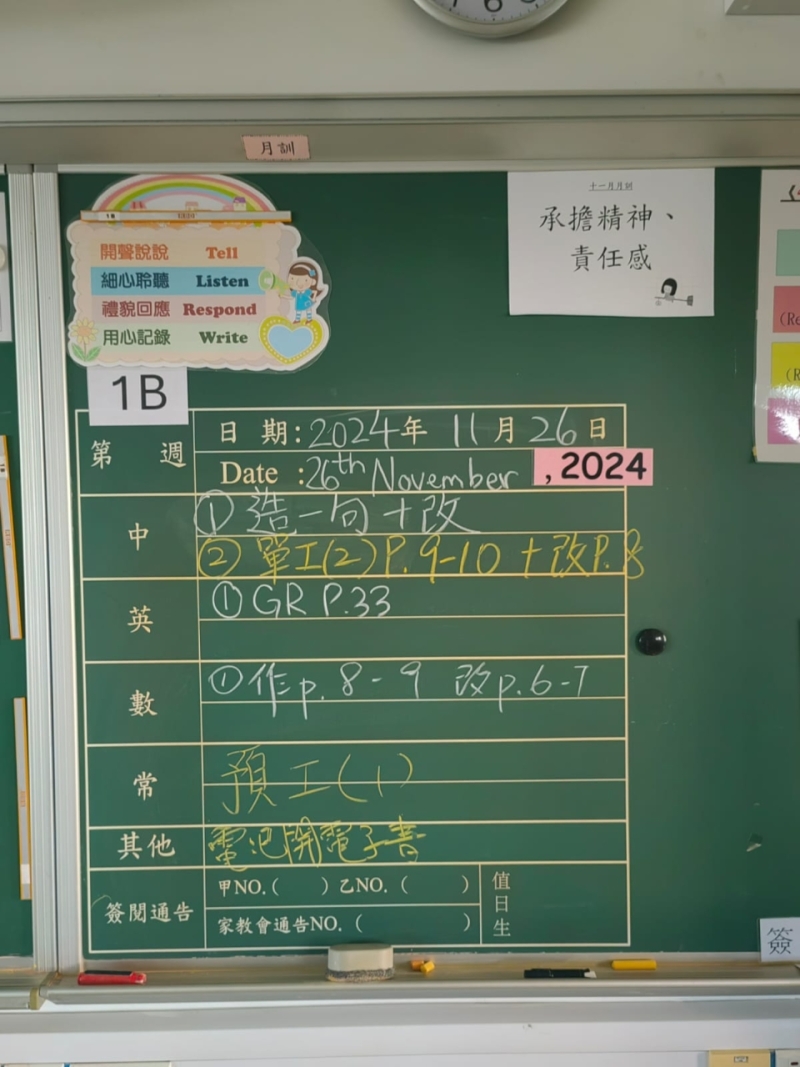 6
月訓
1B
開聲說說 Tell
細心聆聽 Listen
禮貌回應 Respond
用心記錄 Write
十一月月訓
承擔精神、
責任感
1B
第 週
日 期:2024年 11月26日
Date :26th November, 2024
中
① 造一句+改
② 單工(2)P.9-10 + 改P.8
英
① GR P.33
數
① 作p.8-9 改p.6-7
常
預工(1)
其他
開電子書
簽閱通告
甲NO.( ) 乙NO.( )
家教會通告NO.( )
值日生
簽
(Re
(R